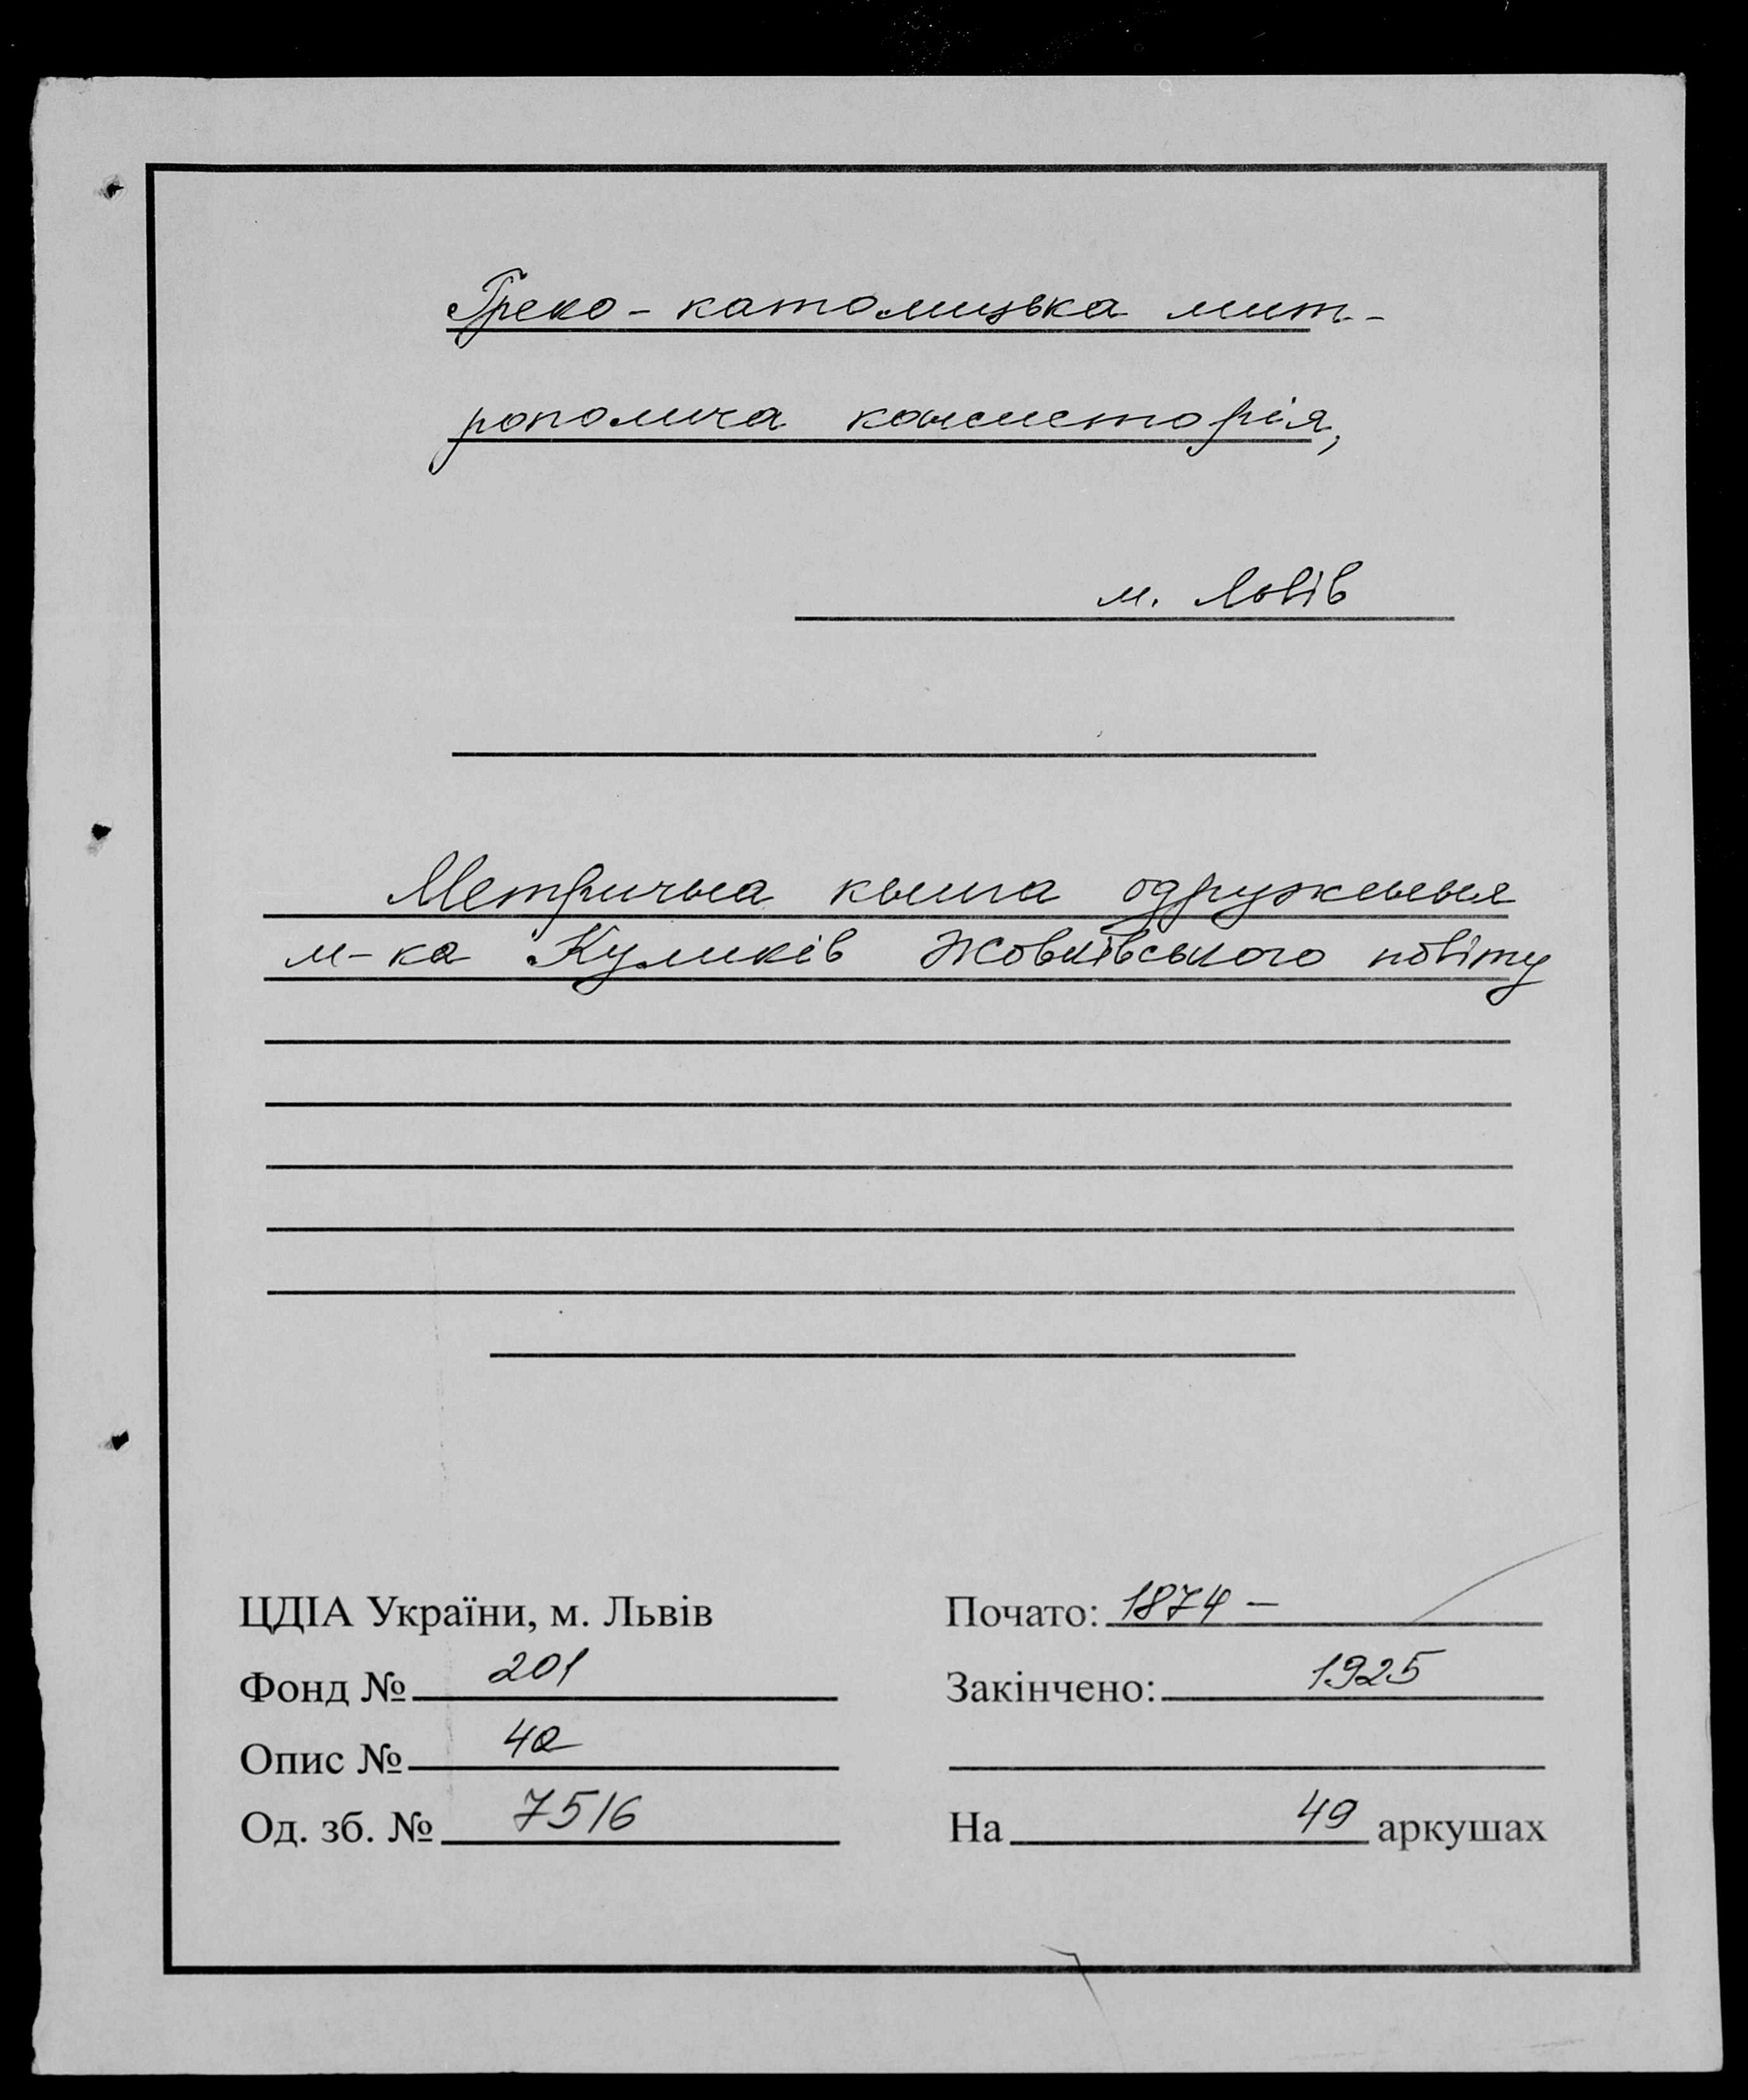 Греко-католицька мит-
рополича консисторія,
м. Львів
Метрична книга одруження
м-ка Куликів Жовківського повіту
ЦДІА України, м. Львів
Почато: 1874 –
Фонд № 201
Закінчено: 1925
Опис № 4а
Од. зб. № 7516
На 49 аркушах